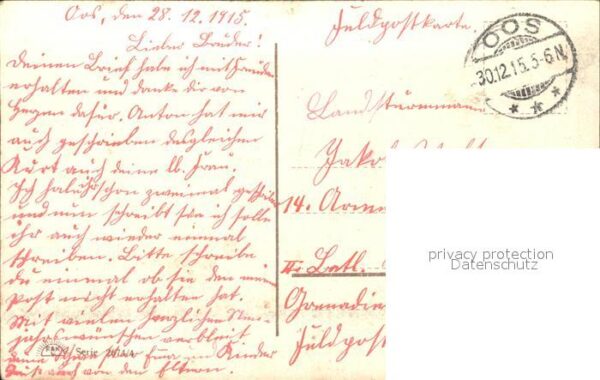 Oos, den 28.12.1915.
Lieber Bruder!
Deinen Brief habe ich mit Freuden
erhalten und danke dir von
Herzen dafür. Anton hat mir
auch geschrieben desgleichen
Kurt auch deine lb. Frau.
Ich habe ihr schon zweimal geschrieben
und nun schreibt sie ich solle
ihr auch wieder einmal
schreiben. Bitte schreibe
du einmal ob sie den meine
Post nicht erhalten hat.
Mit vielen herzlichen Neu-
jahrswünschen verbleibt
deine Schwester Emma und Kinder
Gruß auch von den Eltern.
Serie
Feldpostkarte.
OOS
30.12.15.5-6N.
* * *
Landsturmmann
Jakob
14. Armee
II. Batl.
Grenadier
Feldpost
privacy protection
Datenschutz